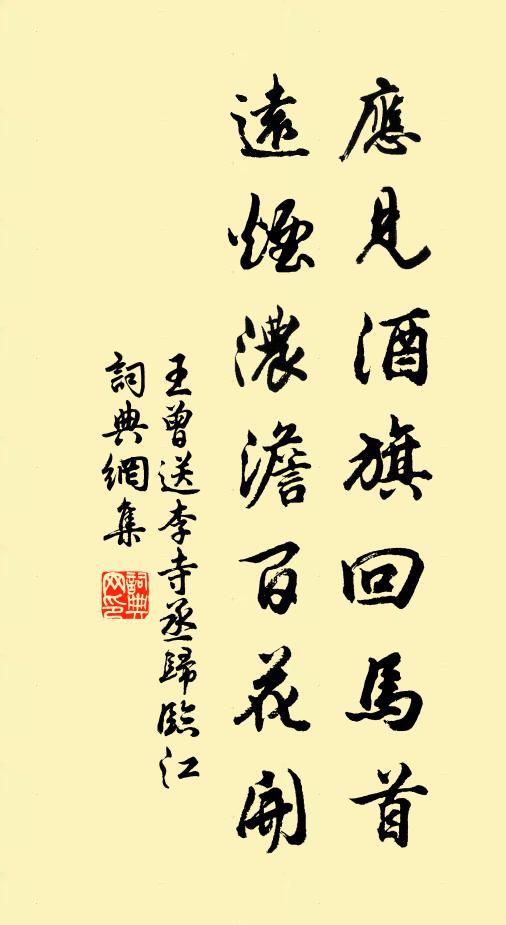 應見酒旗回馬首
遠煙濃澹百花開
王曾送李寺丞歸臨江
詞典網集
詞典网印